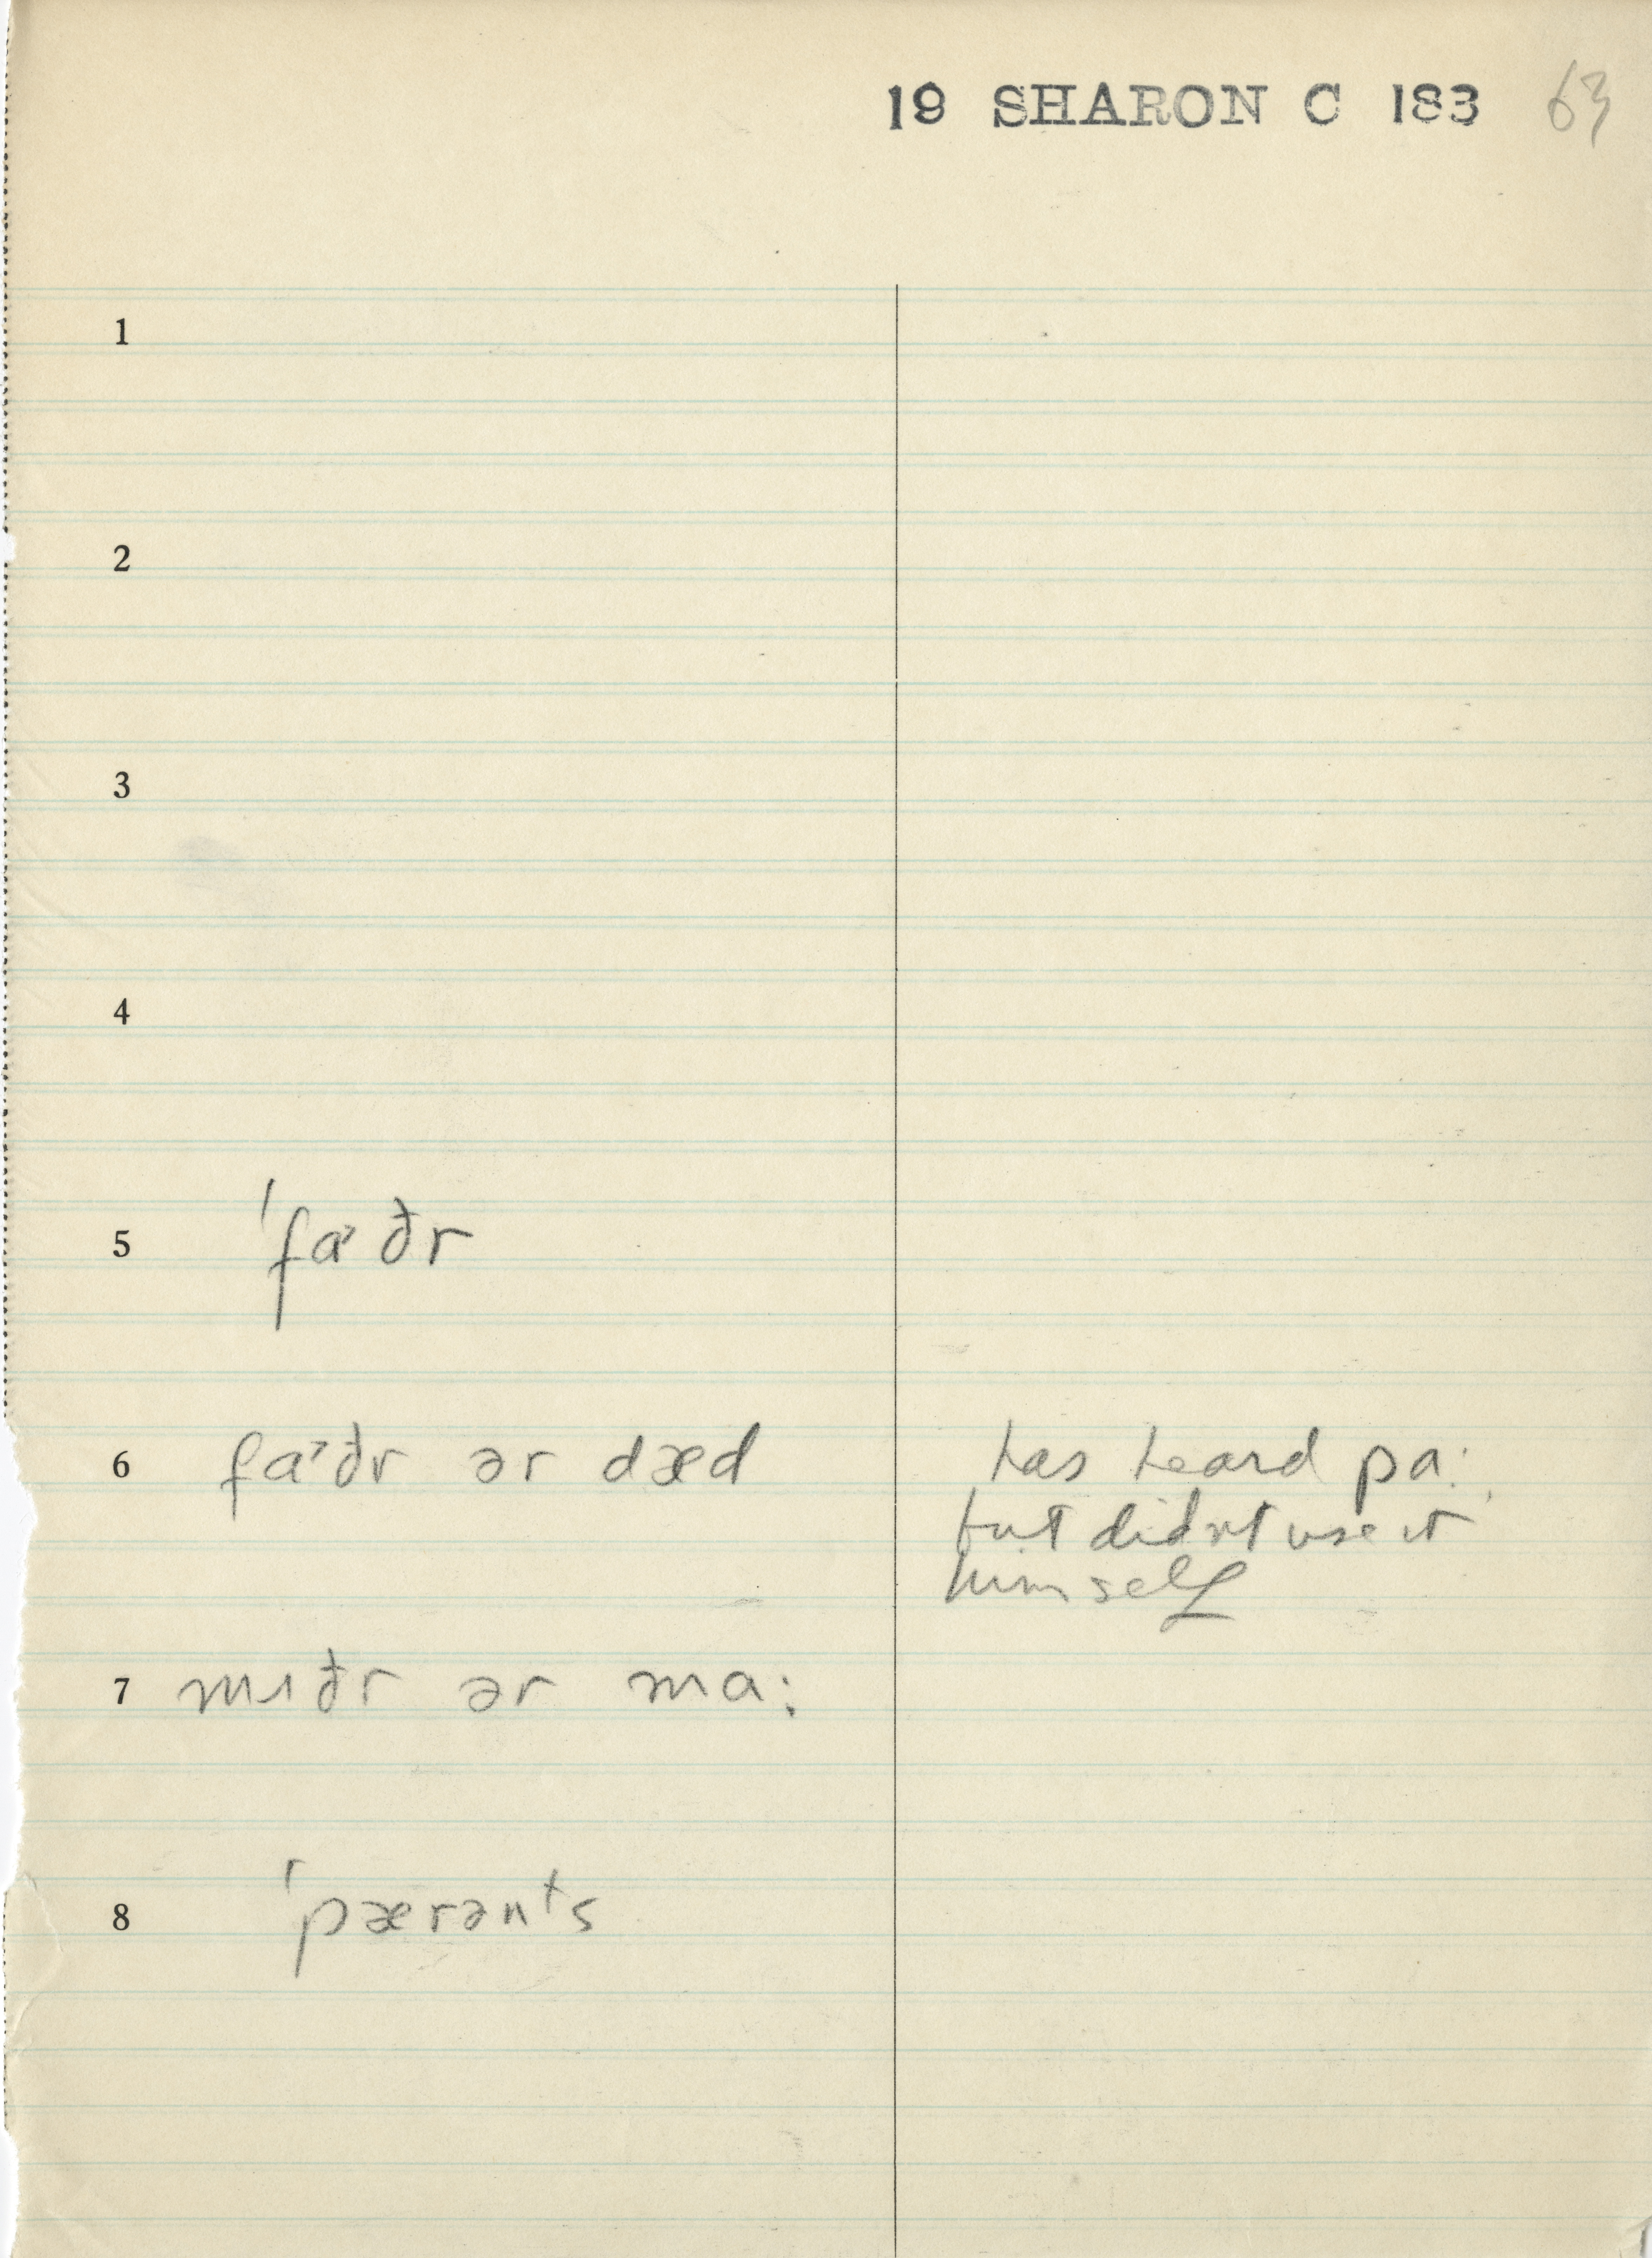 19 SHARON C 183 63
1
2
3
4
5 ˈfa˒ðr
6 fa˒ðr ər dæd
has heard pa:
but didnt use it
himself
7 mɪðr ər ma:
8 ˈpærənᵗs